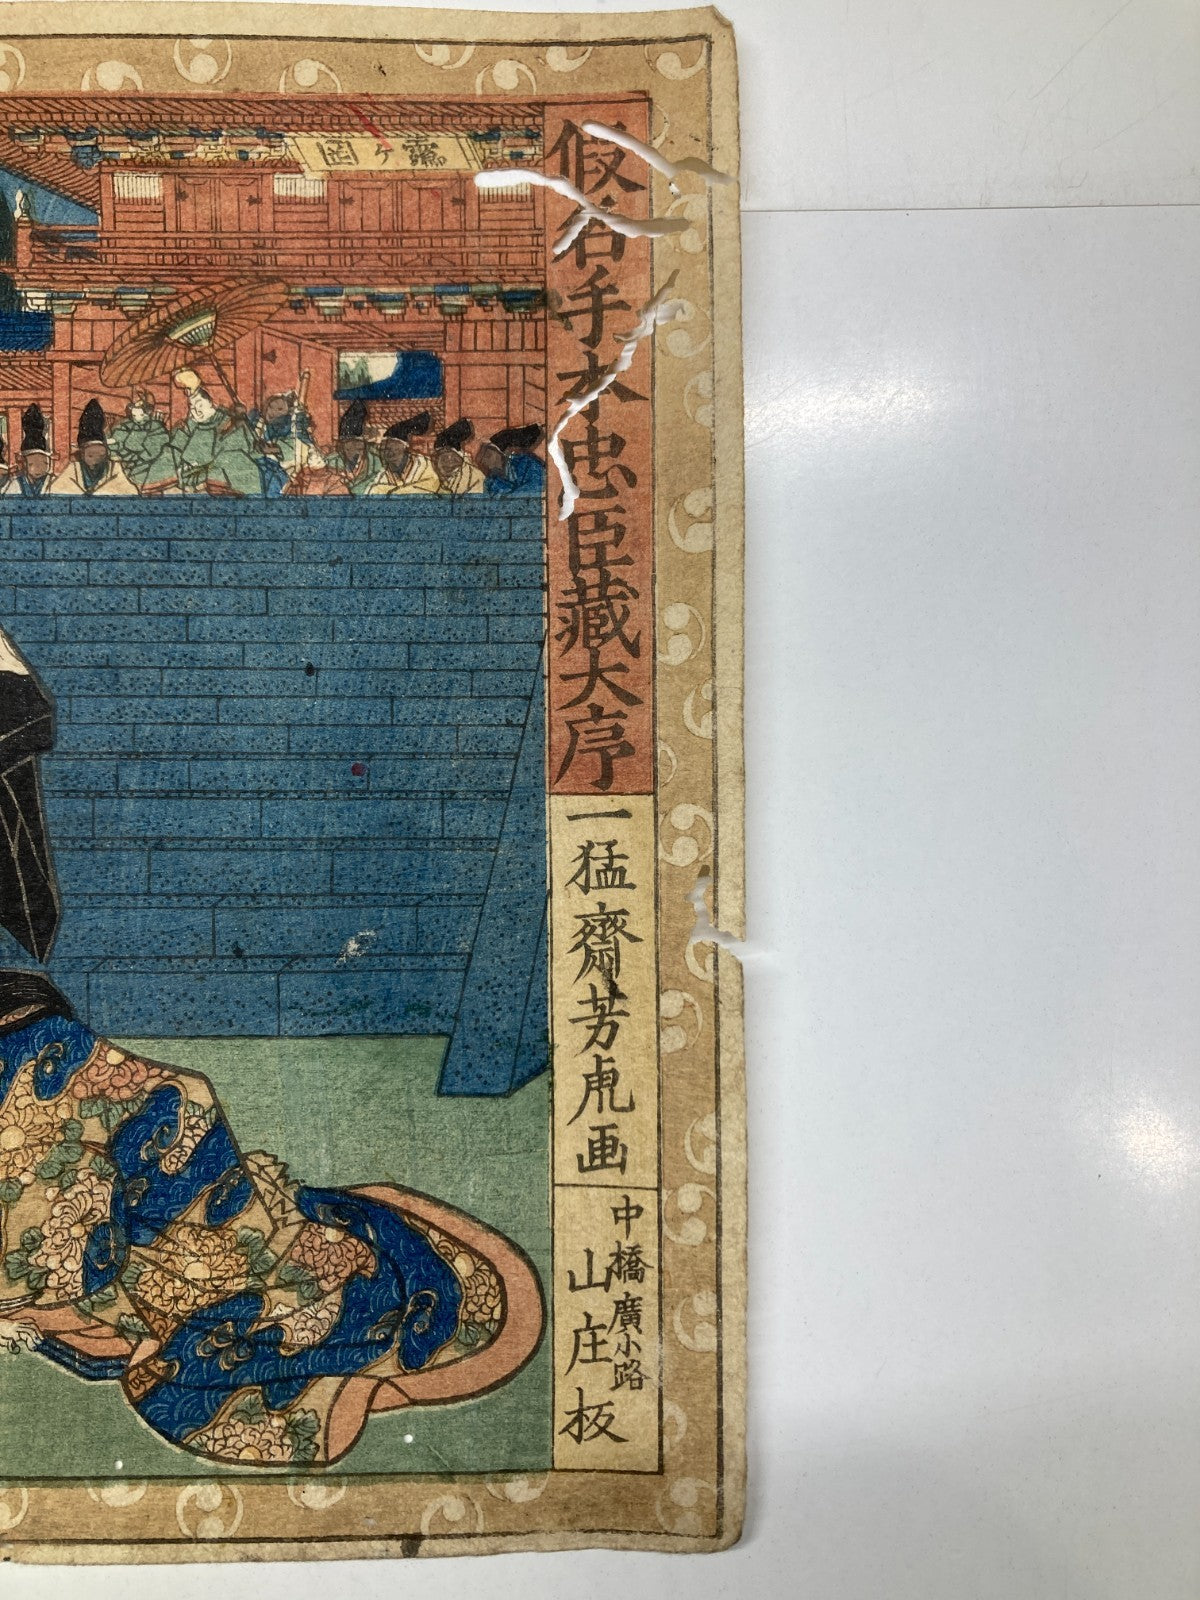 假名手本忠臣藏大序
一猛齋芳虎画
中橋廣小路
山庄板
鶴ヶ岡